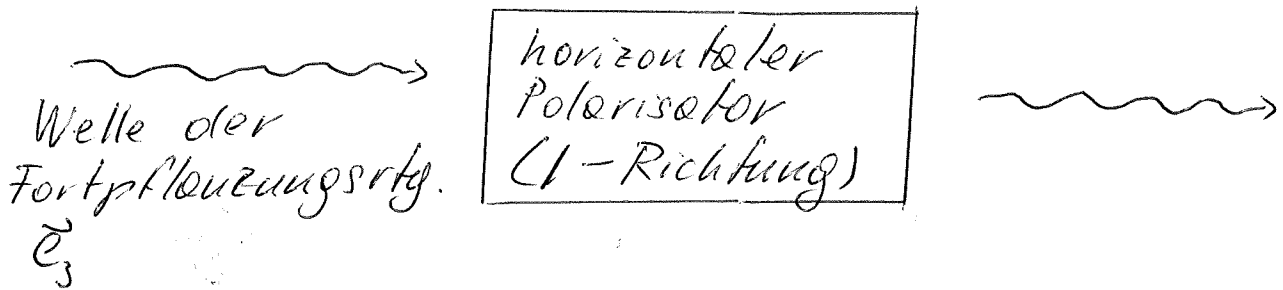 Welle der
Fortpflanzungsrtg.
ẽ₃
horizontaler
Polarisator
(1-Richtung)